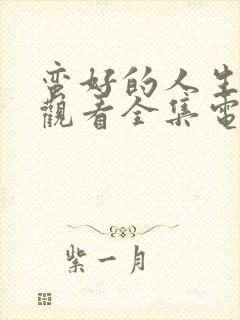 蛮好的人生
觀看全集電
紫一月